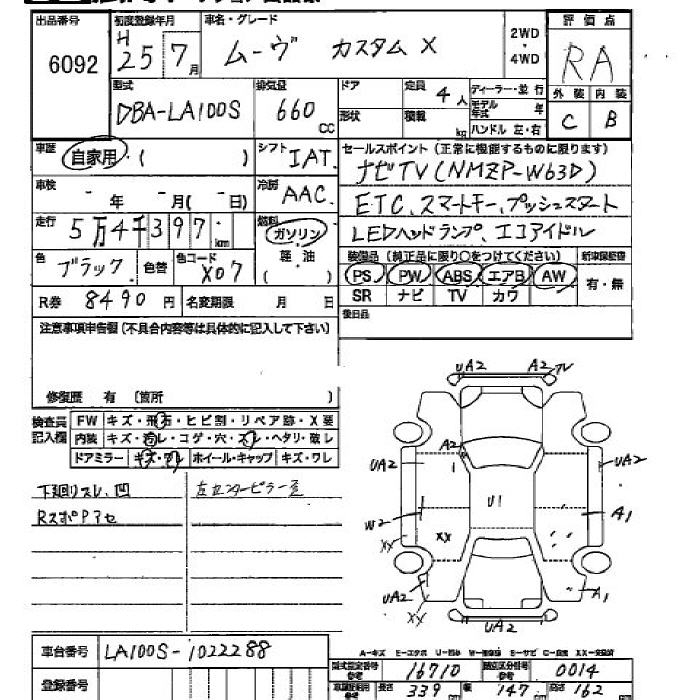 出品番号 初度登録年月 車名・グレード 2WD・4WD 評価点
6092 H25 7月 ムーヴ カスタム X RA
型式 排気量 ドア 定員 4人 ディーラー・並行 外装 内装
DBA-LA100S 660cc 形状 積載 kg モデル年式 年 C B
ハンドル 左・右
車歴 自家用・( ) シフト IAT. セールスポイント(正常に機能するものに限ります)
ナビTV(NMZP-W63D)
車検 - 年 - 月(- 日) 冷房 AAC.
ETC、スマートキー、プッシュスタート
走行 5万4千397km 燃料 ガソリン 軽油 ( )
LEDヘッドランプ、エコアイドル
色 ブラック 色替 色コード X07
装備品(純正品に限り○をつけてください) 新車保証書
PS PW ABS エアB AW 有・無
R券 8490円 名変期限 月 日
SR ナビ TV カワ
後日品
注意事項申告欄(不具合内容等は具体的に記入して下さい)
修復歴 有 (箇所 )
検査員記入欄
FW キズ・飛石・ヒビ割・リペア跡・X要
内装 キズ・汚レ・コゲ・穴・スレ・ヘタリ・破レ
ドアミラー キズ・ワレ ホイール・キャップ キズ・ワレ
下廻リスレ、凹 左センターピラー歪
RスポPアセ
UA2 A2 TV
A2
UA2 UA2
U1
W2 A1
XX XX
UA2 A1
XX UA2
A-キズ E-エクボ U-凹み W-補修跡 S-サビ C-腐食 XX-交換済
車台番号 LA100S-1022288
型式指定番号 参考 16710 類別区分番号 参考 0014
登録番号
車輌記録用 参考 長さ 339 幅 147 高さ 162